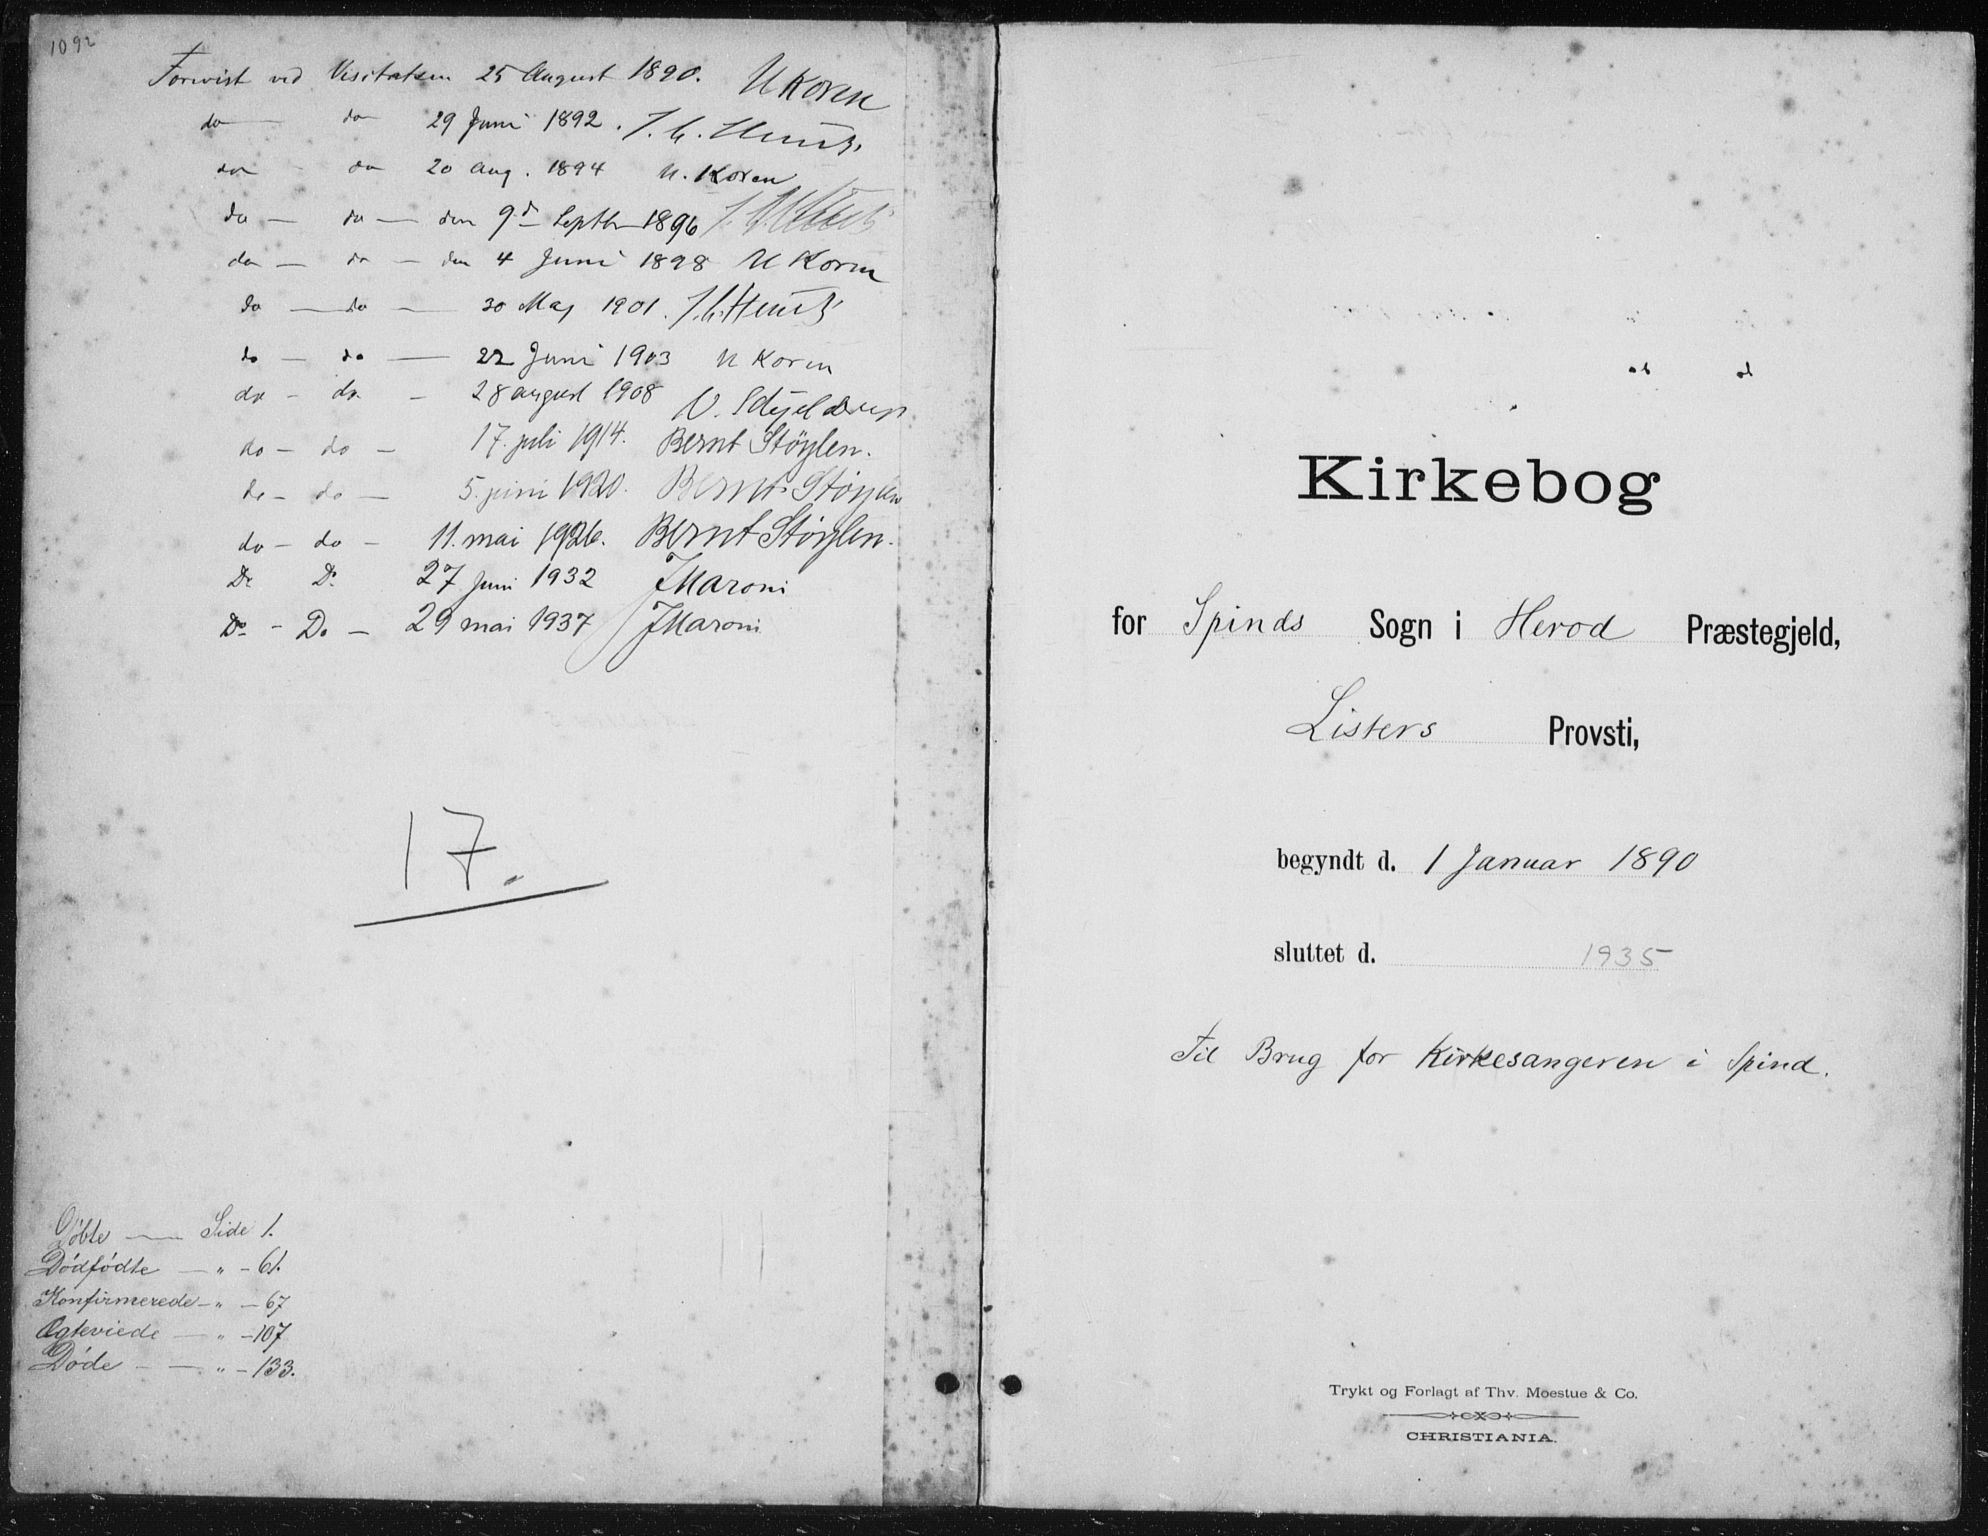 1092
Forevist ved Visitatsen 25 August 1890. U Koren
do — do 29 Juni 1892. J. C. Heuch
do - do 20 aug. 1894 U. Koren
do — do — den 9de Septbr 1896 J. C. Heuch
do — do — den 4 Juni 1898 U Koren
do — do — 30 Maj 1901. J. C. Heuch
do — do — 22 Juni 1903 U Koren
do - do - 28 august 1908 V. Schjelderup
do - do - 17. juli 1914. Bernt Støylen.
do - do - 5. juni 1920. Bernt Støylen
do - do - 11. mai 1926. Bernt Støylen.
Do Do 27 Juni 1932 J Maroni
Do - Do - 29 mai 1937 J Maroni
17.
Døbte — Side 1.
Dødfødte — „ - 61.
Konfirmerede - „ - 67
Ægteviede — „ - 107
Døde - — „ - 133.
Kirkebog
for Spinds Sogn i Herod Præstegjeld,
Listers Provsti,
begyndt d. 1 Januar 1890
sluttet d. 1935
Til Brug for Kirkesangeren i Spind.
Trykt og Forlagt af Thv. Moestue & Co.
CHRISTIANIA.